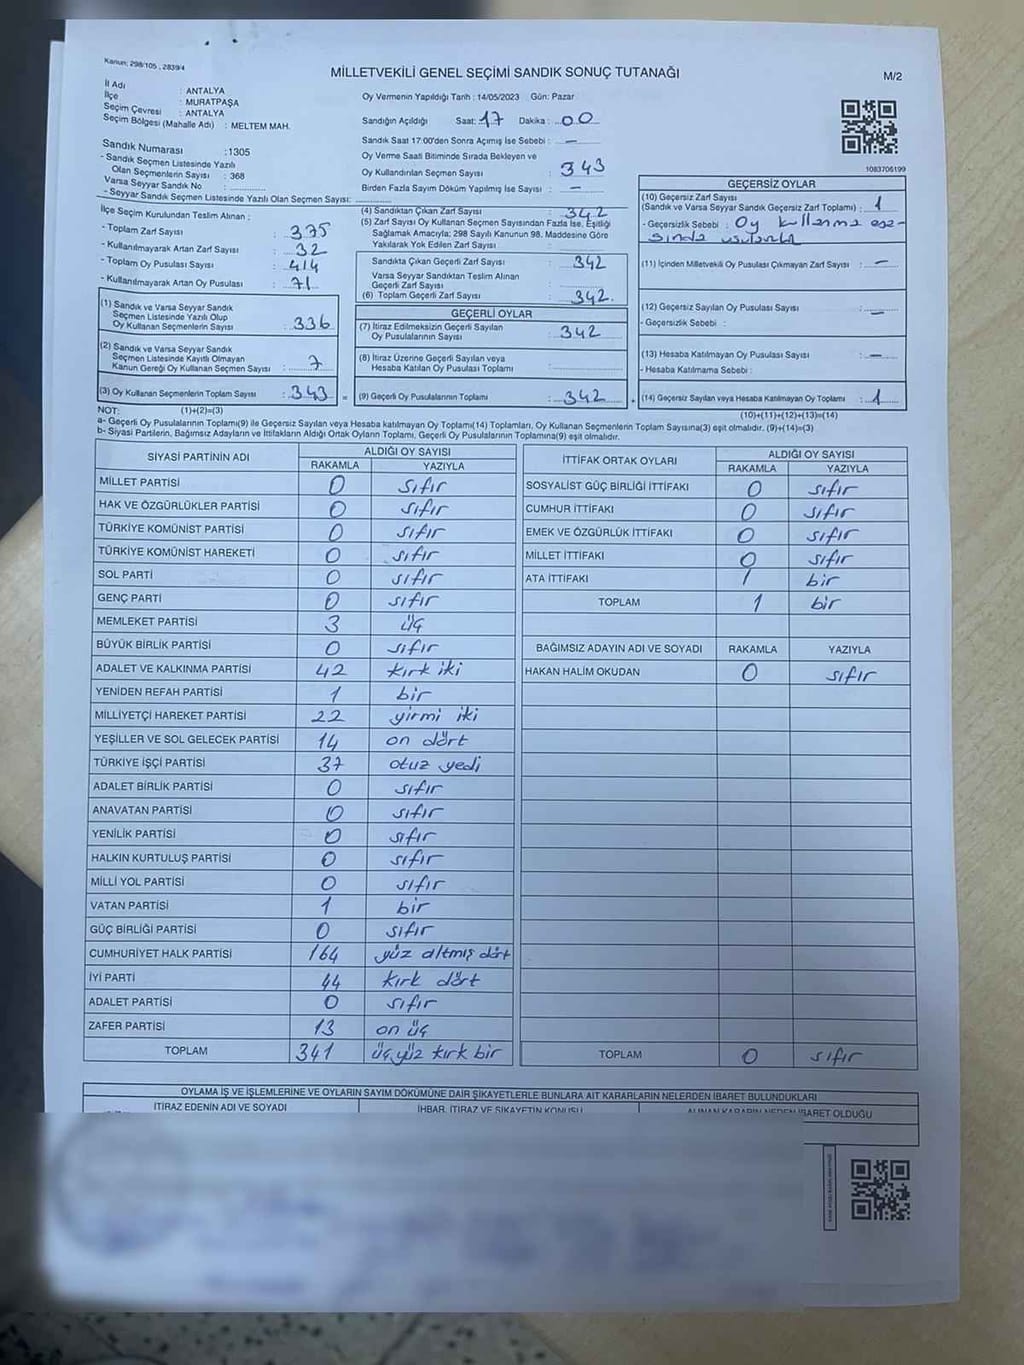 Kanun: 298/105 , 2839/4
MİLLETVEKİLİ GENEL SEÇİMİ SANDIK SONUÇ TUTANAĞI
M/2
İl Adı : ANTALYA
İlçe : MURATPAŞA
Seçim Çevresi : ANTALYA
Seçim Bölgesi (Mahalle Adı) : MELTEM MAH.
Sandık Numarası : 1305
- Sandık Seçmen Listesinde Yazılı
Olan Seçmenlerin Sayısı : 368
Varsa Seyyar Sandık No :
- Seyyar Sandık Seçmen Listesinde Yazılı Olan Seçmen Sayısı:
Oy Vermenin Yapıldığı Tarih : 14/05/2023 Gün: Pazar
Sandığın Açıldığı Saat: 17 Dakika : 00
Sandık Saat 17:00'den Sonra Açılmış İse Sebebi : —
Oy Verme Saati Bitiminde Sırada Bekleyen ve
Oy Kullandırılan Seçmen Sayısı : 343
Birden Fazla Sayım Döküm Yapılmış İse Sayısı : —
1083706199
İlçe Seçim Kurulundan Teslim Alınan :
- Toplam Zarf Sayısı : 375
- Kullanılmayarak Artan Zarf Sayısı : 32
- Toplam Oy Pusulası Sayısı : 414
- Kullanılmayarak Artan Oy Pusulası : 71
(1) Sandık ve Varsa Seyyar Sandık
Seçmen Listesinde Yazılı Olup
Oy Kullanan Seçmenlerin Sayısı : 336
(2) Sandık ve Varsa Seyyar Sandık
Seçmen Listesinde Kayıtlı Olmayan
Kanun Gereği Oy Kullanan Seçmen Sayısı : 7
(3) Oy Kullanan Seçmenlerin Toplam Sayısı : 343 =
(4) Sandıktan Çıkan Zarf Sayısı : 342
(5) Zarf Sayısı Oy Kullanan Seçmen Sayısından Fazla İse, Eşitliği
Sağlamak Amacıyla; 298 Sayılı Kanunun 98. Maddesine Göre
Yakılarak Yok Edilen Zarf Sayısı :
Sandıkta Çıkan Geçerli Zarf Sayısı : 342
Varsa Seyyar Sandıktan Teslim Alınan
Geçerli Zarf Sayısı :
(6) Toplam Geçerli Zarf Sayısı : 342
GEÇERLİ OYLAR
(7) İtiraz Edilmeksizin Geçerli Sayılan
Oy Pusulalarının Sayısı : 342
(8) İtiraz Üzerine Geçerli Sayılan veya
Hesaba Katılan Oy Pusulası Toplamı :
(9) Geçerli Oy Pusulalarının Toplamı : 342 +
GEÇERSİZ OYLAR
(10) Geçersiz Zarf Sayısı
(Sandık ve Varsa Seyyar Sandık Geçersiz Zarf Toplamı) : 1
- Geçersizlik Sebebi : Oy kullanma
(11) İçinden Milletvekili Oy Pusulası Çıkmayan Zarf Sayısı : —
(12) Geçersiz Sayılan Oy Pusulası Sayısı : —
- Geçersizlik Sebebi :
(13) Hesaba Katılmayan Oy Pusulası Sayısı : —
- Hesaba Katılmama Sebebi :
(14) Geçersiz Sayılan veya Hesaba Katılmayan Oy Toplamı : 1
NOT: (1)+(2)=(3) (10)+(11)+(12)+(13)=(14)
a- Geçerli Oy Pusulalarının Toplamı(9) ile Geçersiz Sayılan veya Hesaba katılmayan Oy Toplamı(14) Toplamları, Oy Kullanan Seçmenlerin Toplam Sayısına(3) eşit olmalıdır. (9)+(14)=(3)
b- Siyasi Partilerin, Bağımsız Adayların ve İttifakların Aldığı Ortak Oyların Toplamı, Geçerli Oy Pusulalarının Toplamına(9) eşit olmalıdır.
SİYASİ PARTİNİN ADI ALDIĞI OY SAYISI
RAKAMLA YAZIYLA
MİLLET PARTİSİ 0 sıfır
HAK VE ÖZGÜRLÜKLER PARTİSİ 0 sıfır
TÜRKİYE KOMÜNİST PARTİSİ 0 sıfır
TÜRKİYE KOMÜNİST HAREKETİ 0 sıfır
SOL PARTİ 0 sıfır
GENÇ PARTİ 0 sıfır
MEMLEKET PARTİSİ 3 üç
BÜYÜK BİRLİK PARTİSİ 0 sıfır
ADALET VE KALKINMA PARTİSİ 42 kırk iki
YENİDEN REFAH PARTİSİ 1 bir
MİLLİYETÇİ HAREKET PARTİSİ 22 yirmi iki
YEŞİLLER VE SOL GELECEK PARTİSİ 14 on dört
TÜRKİYE İŞÇİ PARTİSİ 37 otuz yedi
ADALET BİRLİK PARTİSİ 0 sıfır
ANAVATAN PARTİSİ 0 sıfır
YENİLİK PARTİSİ 0 sıfır
HALKIN KURTULUŞ PARTİSİ 0 sıfır
MİLLİ YOL PARTİSİ 0 sıfır
VATAN PARTİSİ 1 bir
GÜÇ BİRLİĞİ PARTİSİ 0 sıfır
CUMHURİYET HALK PARTİSİ 164 yüz altmış dört
İYİ PARTİ 44 kırk dört
ADALET PARTİSİ 0 sıfır
ZAFER PARTİSİ 13 on üç
TOPLAM 341 üç yüz kırk bir
İTTİFAK ORTAK OYLARI ALDIĞI OY SAYISI
RAKAMLA YAZIYLA
SOSYALİST GÜÇ BİRLİĞİ İTTİFAKI 0 sıfır
CUMHUR İTTİFAKI 0 sıfır
EMEK VE ÖZGÜRLÜK İTTİFAKI 0 sıfır
MİLLET İTTİFAKI 0 sıfır
ATA İTTİFAKI 1 bir
TOPLAM 1 bir
BAĞIMSIZ ADAYIN ADI VE SOYADI RAKAMLA YAZIYLA
HAKAN HALİM OKUDAN 0 sıfır
TOPLAM 0 sıfır
OYLAMA İŞ VE İŞLEMLERİNE VE OYLARIN SAYIM DÖKÜMÜNE DAİR ŞİKAYETLERLE BUNLARA AİT KARARLARIN NELERDEN İBARET BULUNDUKLARI
İTİRAZ EDENİN ADI VE SOYADI İHBAR, İTİRAZ VE ŞİKAYETİN KONUSU ALINAN KARARIN NEDEN İBARET OLDUĞU